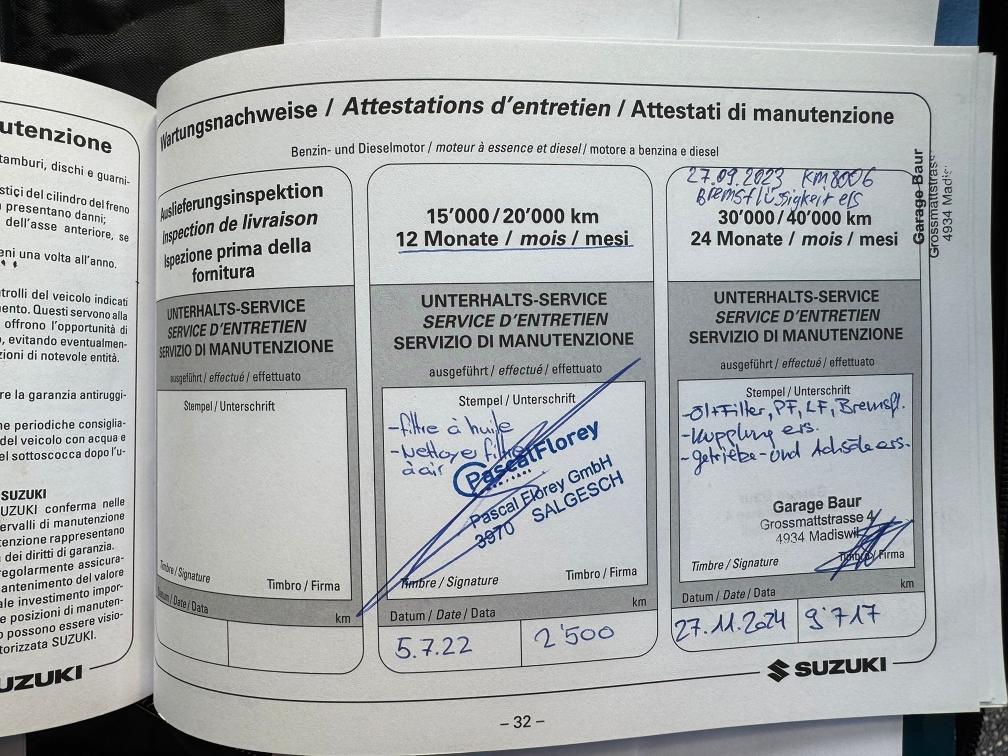 utenzione
tamburi, dischi e guarni-
stici del cilindro del freno
presentano danni;
dell'asse anteriore, se
eni una volta all'anno.
trolli del veicolo indicati
mento. Questi servono alla
offrono l'opportunità di
, evitando eventualmen-
zioni di notevole entità.
re la garanzia antiruggi-
ne periodiche consiglia-
del veicolo con acqua e
el sottoscocca dopo l'u-
SUZUKI
UZUKI conferma nelle
ervalli di manutenzione
tenzione rappresentano
dei diritti di garanzia.
regolarmente assicura-
antenimento del valore
ale investimento impor-
e posizioni di manuten-
o possono essere visio-
torizzata SUZUKI.
UZUKI
Wartungsnachweise / Attestations d'entretien / Attestati di manutenzione
Benzin- und Dieselmotor / moteur à essence et diesel / motore a benzina e diesel
Auslieferungsinspektion
Inspection de livraison
Ispezione prima della
fornitura
UNTERHALTS-SERVICE
SERVICE D'ENTRETIEN
SERVIZIO DI MANUTENZIONE
ausgeführt / effectué / effettuato
Stempel / Unterschrift
Timbre / Signature
Timbro / Firma
Datum / Date / Data
km
15'000 / 20'000 km
12 Monate / mois / mesi
UNTERHALTS-SERVICE
SERVICE D'ENTRETIEN
SERVIZIO DI MANUTENZIONE
ausgeführt / effectué / effettuato
Stempel / Unterschrift
- filtre à huile
- Nettoyer filtre
à air
Pascal Florey
Pascal Florey GmbH
3970 SALGESCH
Timbre / Signature
Timbro / Firma
Datum / Date / Data
km
5.7.22
2'500
27.09.2023 KM 8006
Bremsflüssigkeit ers
30'000 / 40'000 km
24 Monate / mois / mesi
Garage Baur
Grossmattstrass
4934 Madis
UNTERHALTS-SERVICE
SERVICE D'ENTRETIEN
SERVIZIO DI MANUTENZIONE
ausgeführt / effectué / effettuato
Stempel / Unterschrift
- Öl + Filter, PF, LF, Bremsfl.
- Kupplung ers.
- getriebe- und Achsöle ers.
Garage Baur
Grossmattstrasse 4
4934 Madiswil
Timbre / Signature
Timbro / Firma
Datum / Date / Data
km
27.11.2024
9'717
SUZUKI
– 32 –